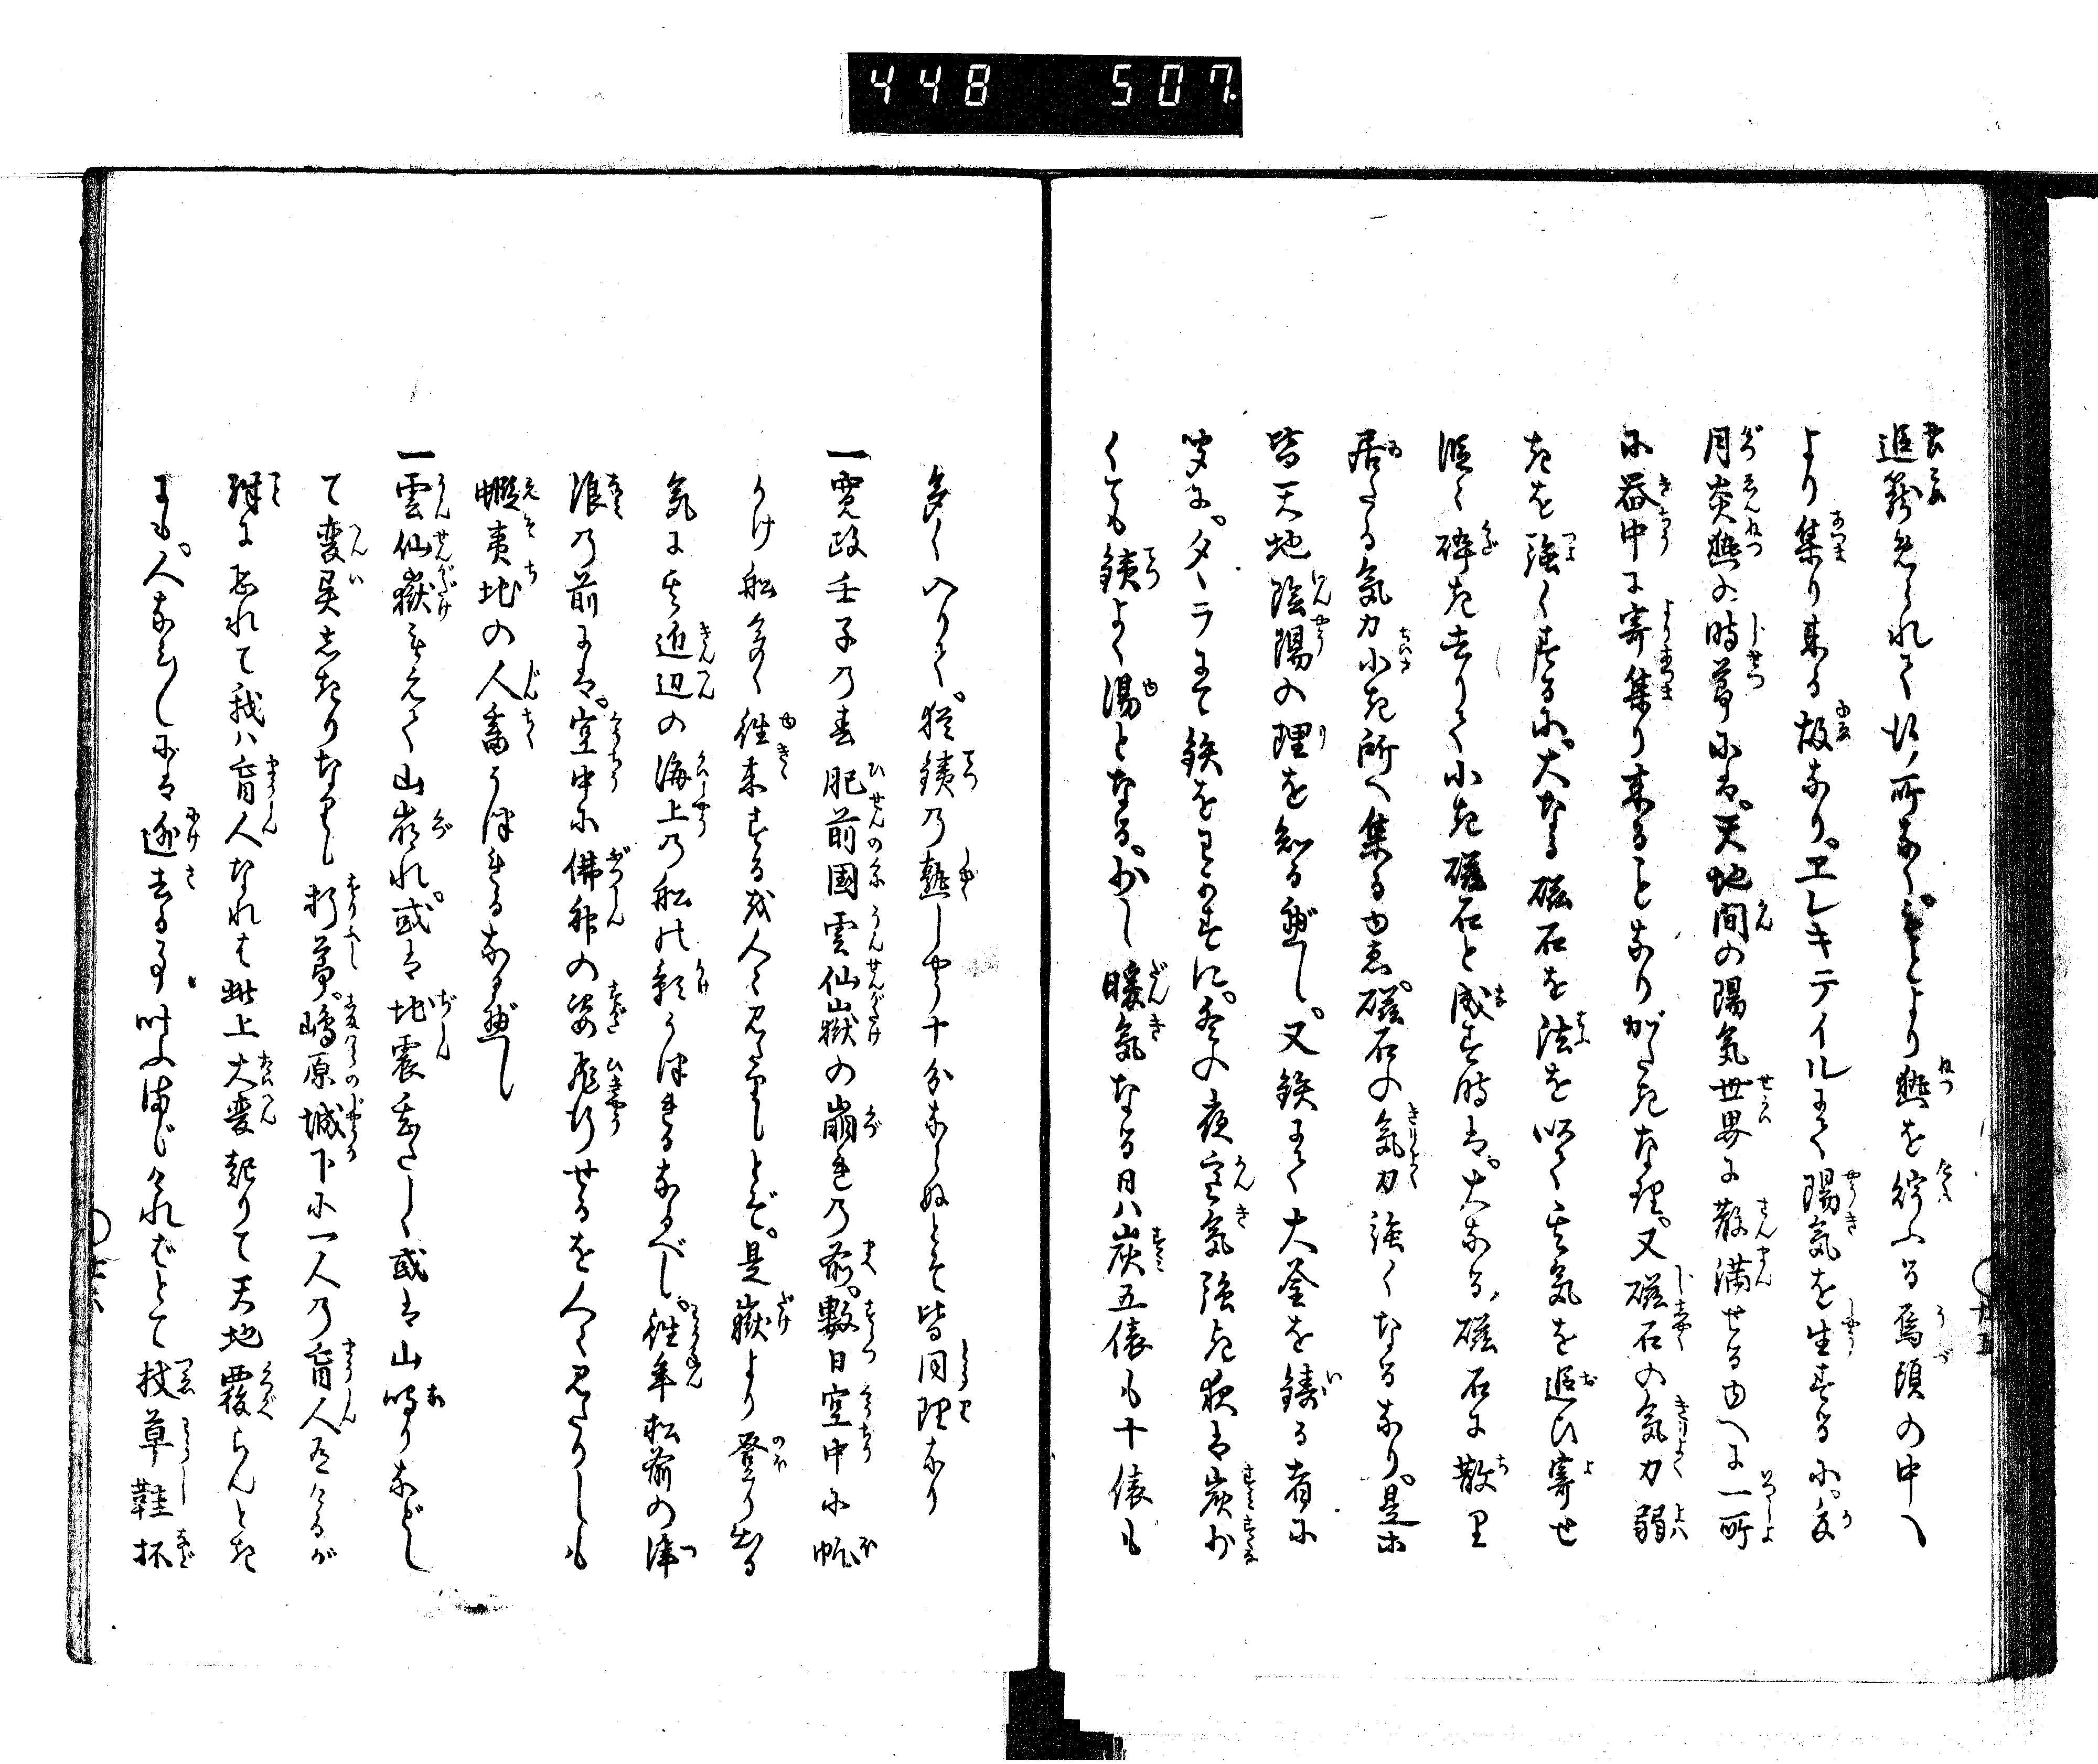 448 507
追籠られて行所なく。もとより熱を貯ふる烏頭の中へ
より集り来る故なり。エレキテイルにて陽気を生ずるに。夏
月炎熱の時節には。天地間の陽気世界に散満せるゆへに一所
に器中に寄集り来ることなりがたきな理。又磁石の気力弱
きを強くするに。大なる磁石を法を以て其気を追ひ寄せ
砕き去りて小き磁石と成す時は。大なる磁石に散り
居たる気力小き所へ集るゆゑ。磁石の気力強くなるなり。是等
皆天地陰陽の理を知る べし。又鉄にて大釜を鋳る者に
聞に。タヽラにて鉄をわかすに。冬の夜寒気強き夜は炭少
くても鉄よく湯となる。少し暖気なる日ハ炭五俵も十俵も
多く入りて。猶鉄の熟しやう十分ならぬとぞ皆同理なり
一寛政壬子の春肥前國雲仙嶽の崩れの前。數日空中に帆
かけ船多く往来するを人々見たりしとぞ。是嶽より登り出る
気に其近辺の海上の船の影うつれるなるべし。往年松前の津
浪の前には。空中に佛神の姿飛行せるを人々見たりしも
蝦夷地の人畜うつれるなるべし
一雲仙嶽もえて山崩れ。或は地震甚しく或は山鳴りなどし
て変異しきりなりし折節。嶋原城下に一人の盲人有けるが
殊に恐れて我ハ盲人なれば此上大変起りて天地覆らんとき
にも。人なみ／＼には逃去る事叶ふまじければとて杖草鞋抔